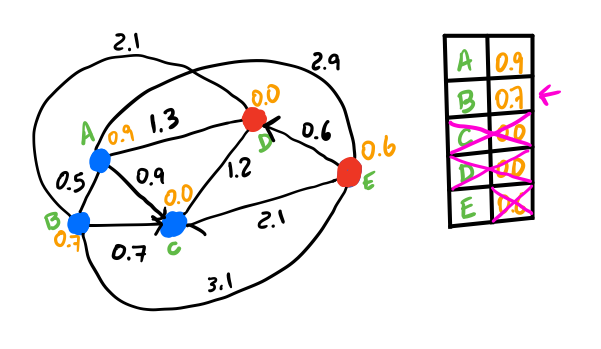 2.1
2.9
A
0.9
1.3
0.0
D
0.6
0.6
E
0.5
0.9
0.0
1.2
B
0.7
0.7
C
2.1
3.1
A 0.9
B 0.7
C 0.0
D 0.0
E